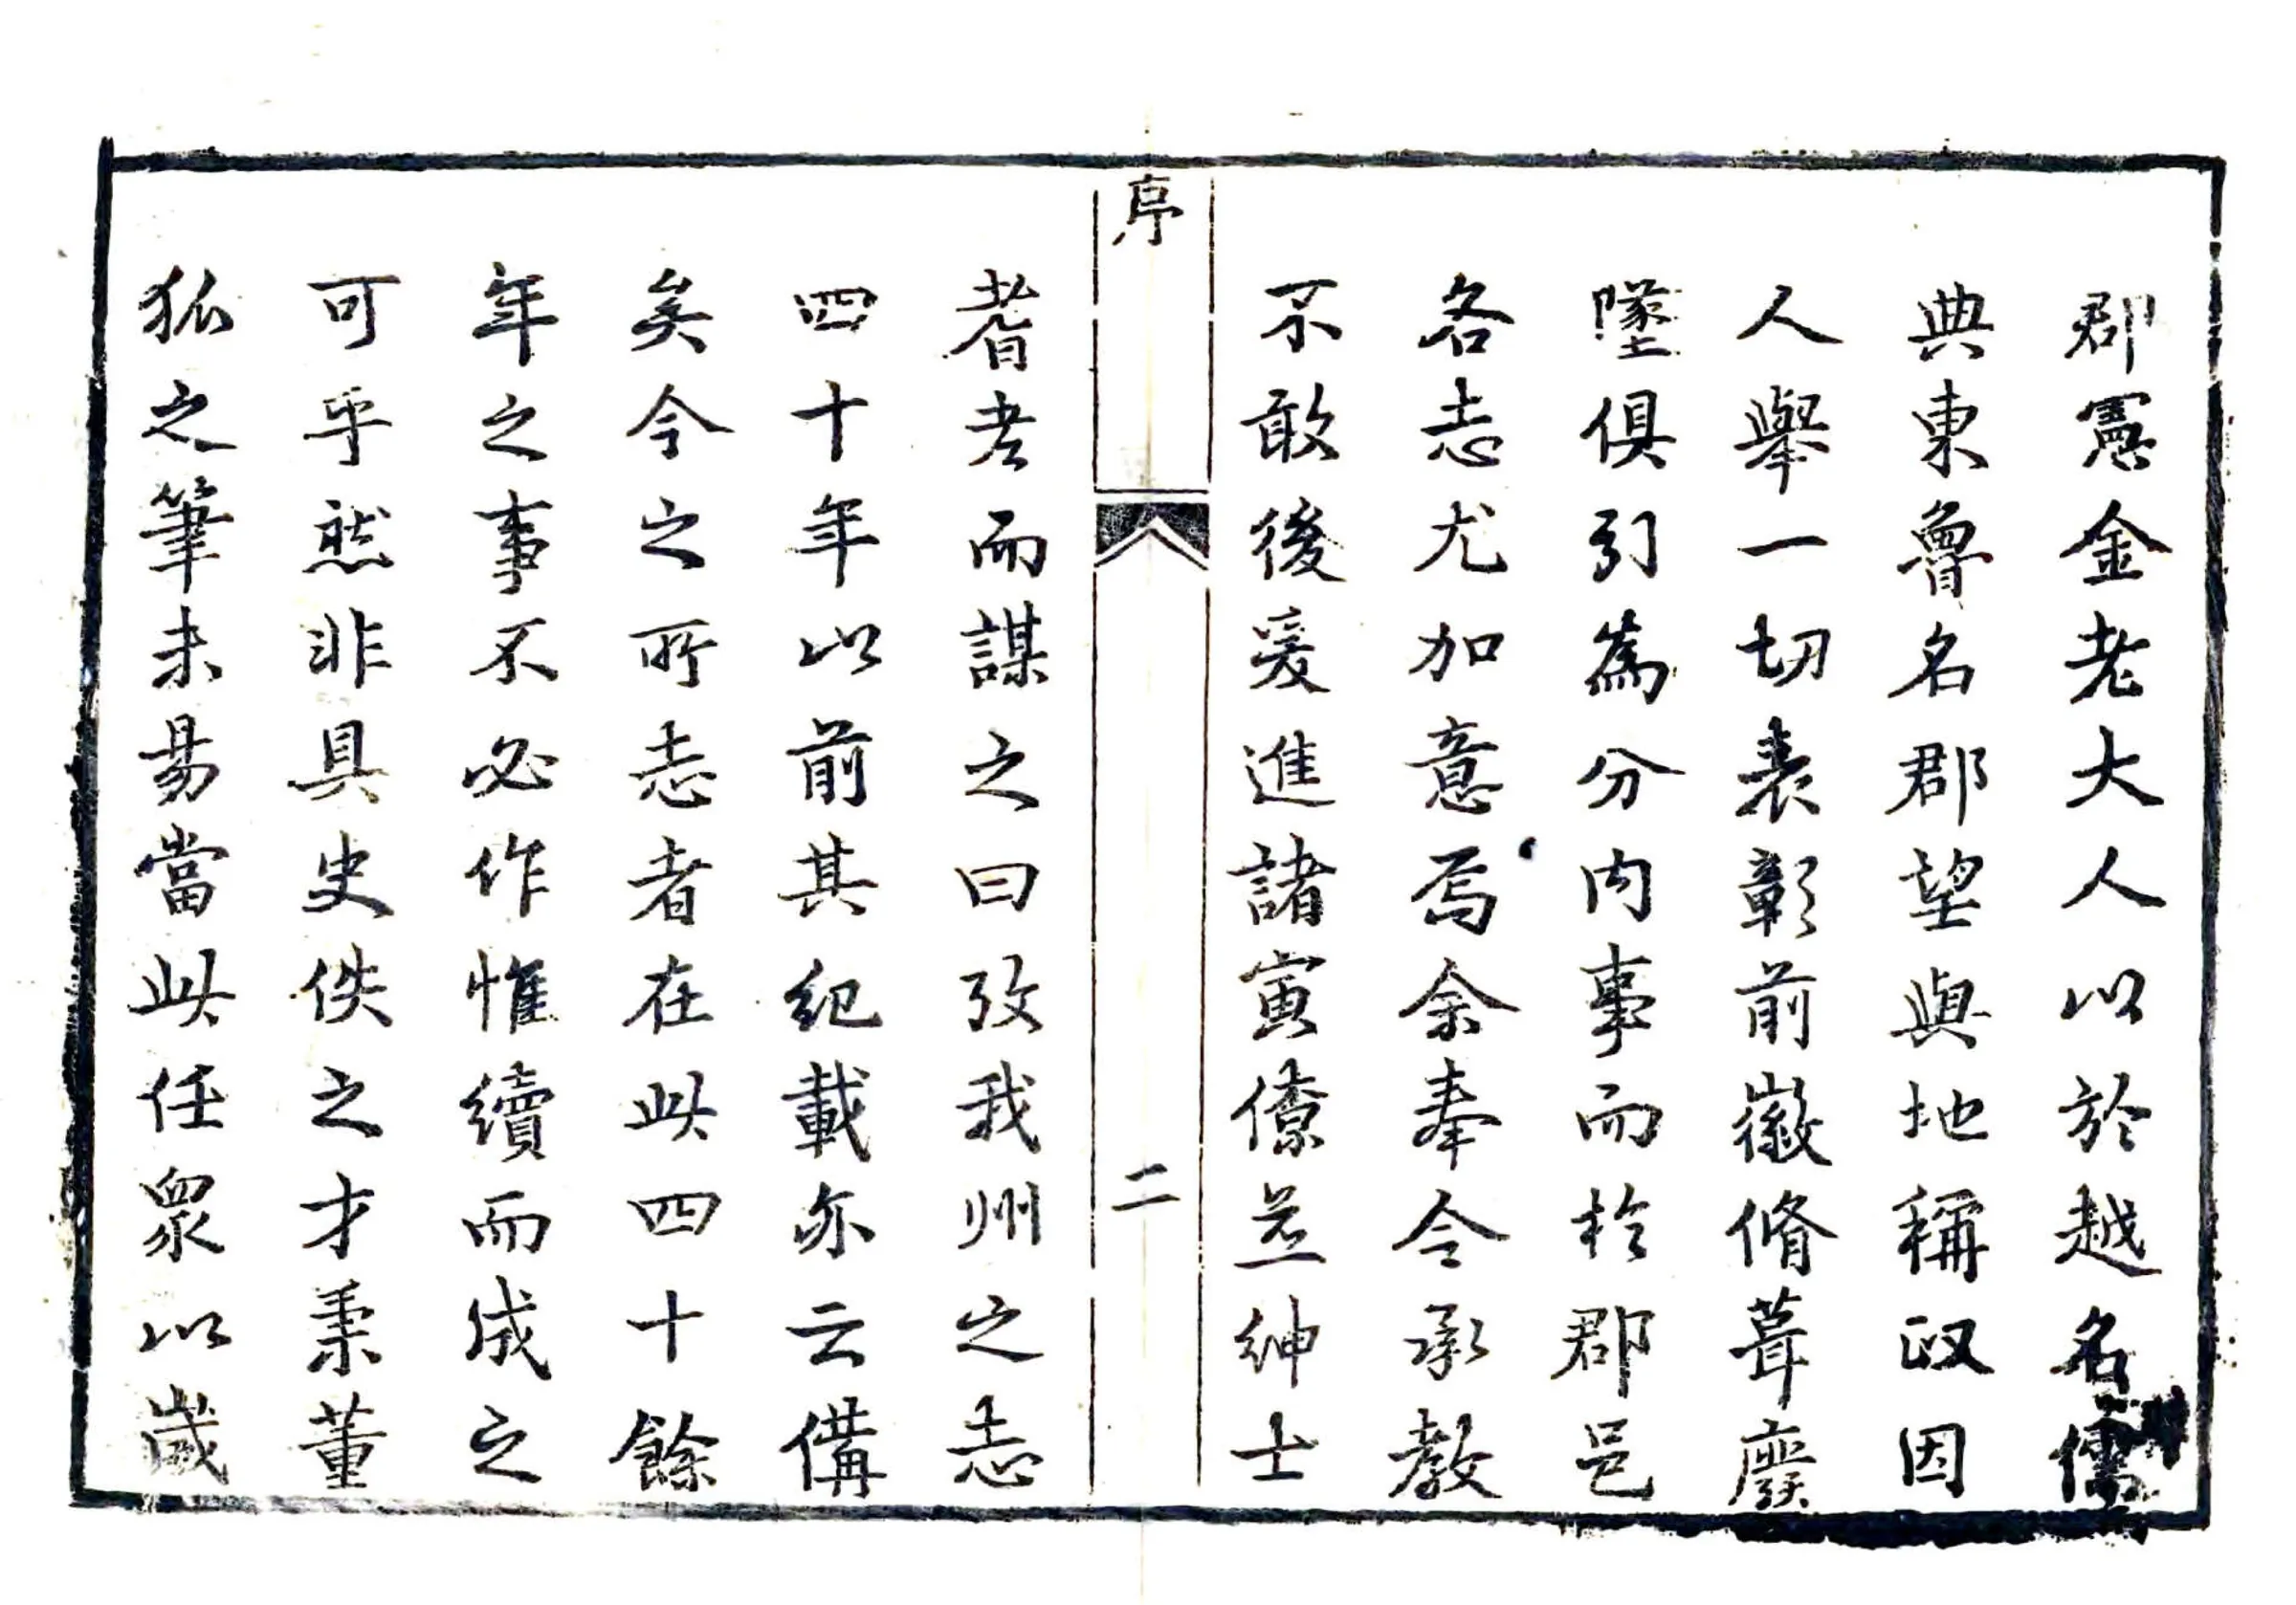 郡憲金老大人以於越名儒
典東魯名郡望與地稱政因
人舉一切表彰前徽脩葺廢
墜俱引為分内事而於郡邑
各志尤加意焉余奉令承教
不敢後爰進諸寅僚並紳士
序
二
耆考而謀之曰攷我州之志
四十年以前其紀載亦云備
矣今之所志者在此四十餘
年之事不必作惟續而成之
可乎然非具史佚之才秉董
狐之筆未易當此任衆以歲